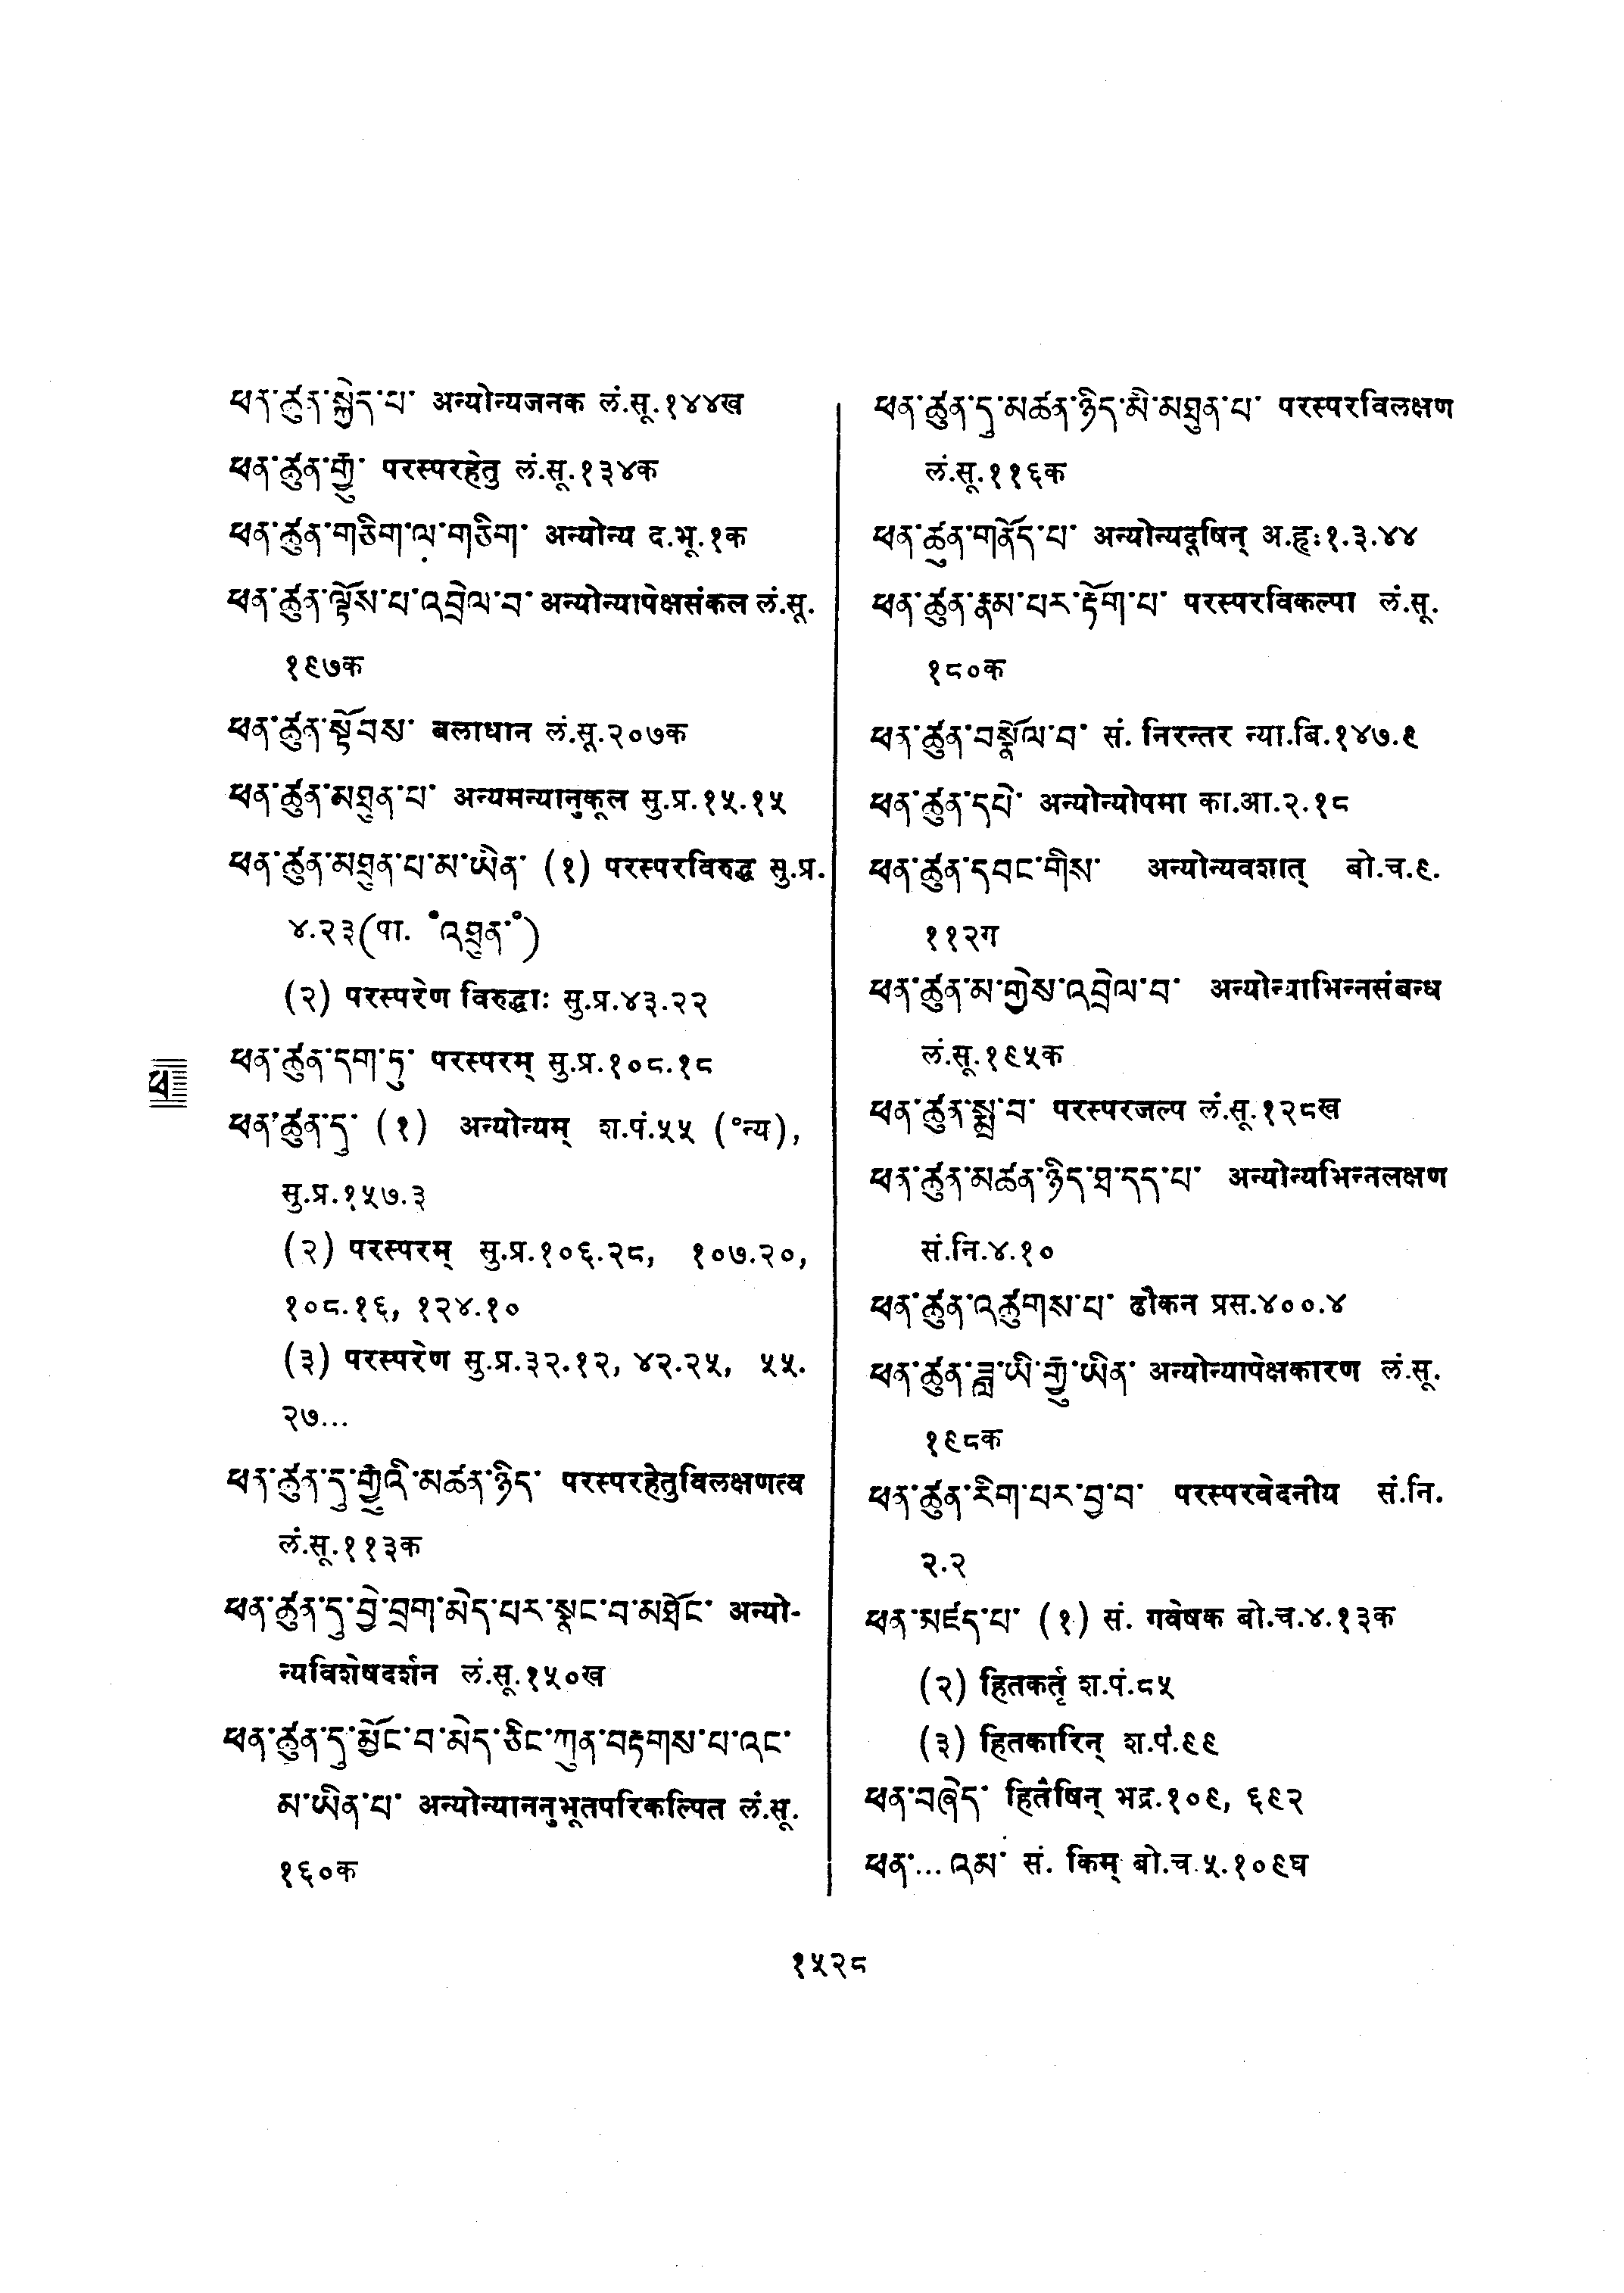 ཕན་ཚུན་སྐྱེད་པ་ अन्योन्यजनक लं.सू.१४४ख
ཕན་ཚུན་རྒྱུ་ परस्परहेतु लं.सू.१३४क
ཕན་ཚུན་གཅིག་ལ་གཅིག་ अन्योन्य द.भू.१क
ཕན་ཚུན་ལྟོས་པ་འབྲེལ་བ་ अन्योन्यापेक्षसंकल लं.सू.
१९७क
ཕན་ཚུན་སྟོབས་ बलाधान लं.सू.२०७क
ཕན་ཚུན་མཐུན་པ་ अन्यमन्यानुकूल सु.प्र.१५.१५
ཕན་ཚུན་མཐུན་པ་མ་ཡིན་ (१) परस्परविरुद्ध सु.प्र.
४.२३(पा. °འཐུན་°)
(२) परस्परेण विरुद्धाः सु.प्र.४३.२२
ཕན་ཚུན་དག་ཏུ་ परस्परम् सु.प्र.१०८.१८
ཕ
ཕན་ཚུན་དུ་ (१) अन्योन्यम् श.पं.५५ (°न्य),
सु.प्र.१५७.३
(२) परस्परम् सु.प्र.१०६.२८, १०७.२०,
१०८.१६, १२४.१०
(३) परस्परेण सु.प्र.३२.१२, ४२.२५, ५५.
२७...
ཕན་ཚུན་དུ་རྒྱུའི་མཚན་ཉིད་ परस्परहेतुविलक्षणत्व
लं.सू.११३क
ཕན་ཚུན་དུ་བྱེ་བྲག་མེད་པར་སྣང་བ་མཐོང་ अन्यो-
न्यविशेषदर्शन लं.सू.१५०ख
ཕན་ཚུན་དུ་མྱོང་བ་མེད་ཅིང་ཀུན་བརྟགས་པ་འང་
མ་ཡིན་པ་ अन्योन्याननुभूतपरिकल्पित लं.सू.
१६०क
ཕན་ཚུན་དུ་མཚན་ཉིད་མི་མཐུན་པ་ परस्परविलक्षण
लं.सू.११६क
ཕན་ཚུན་གནོད་པ་ अन्योन्यदूषिन् अ.हृः१.३.४४
ཕན་ཚུན་རྣམ་པར་རྟོག་པ་ परस्परविकल्पा लं.सू.
१८०क
ཕན་ཚུན་བསྣོལ་བ་ सं. निरन्तर न्या.बि.१४७.९
ཕན་ཚུན་དཔེ་ अन्योन्योपमा का.आ.२.१८
ཕན་ཚུན་དབང་གིས་ अन्योन्यवशात् बो.च.९.
११२ग
ཕན་ཚུན་མ་གྱེས་འབྲེལ་བ་ अन्योन्याभिन्नसंबन्ध
लं.सू.१९५क
ཕན་ཚུན་སྨྲ་བ་ परस्परजल्प लं.सू.१२८ख
ཕན་ཚུན་མཚན་ཉིད་ཐ་དད་པ་ अन्योन्यभिन्नलक्षण
सं.नि.४.१०
ཕན་ཚུན་འཚུགས་པ་ ढौकन प्रस.४००.४
ཕན་ཚུན་ཟླ་ཡི་རྒྱུ་ཡིན་ अन्योन्यापेक्षकारण लं.सू.
१९८क
ཕན་ཚུན་རིག་པར་བྱ་བ་ परस्परवेदनीय सं.नि.
२.२
ཕན་མཛད་པ་ (१) सं. गवेषक बो.च.४.१३क
(२) हितकर्तृ श.पं.८५
(३) हितकारिन् श.पं.९९
ཕན་བཞེད་ हितैषिन् भद्र.१०९, ६९२
ཕན་...འམ་ सं. किम् बो.च.५.१०९घ
१५२८